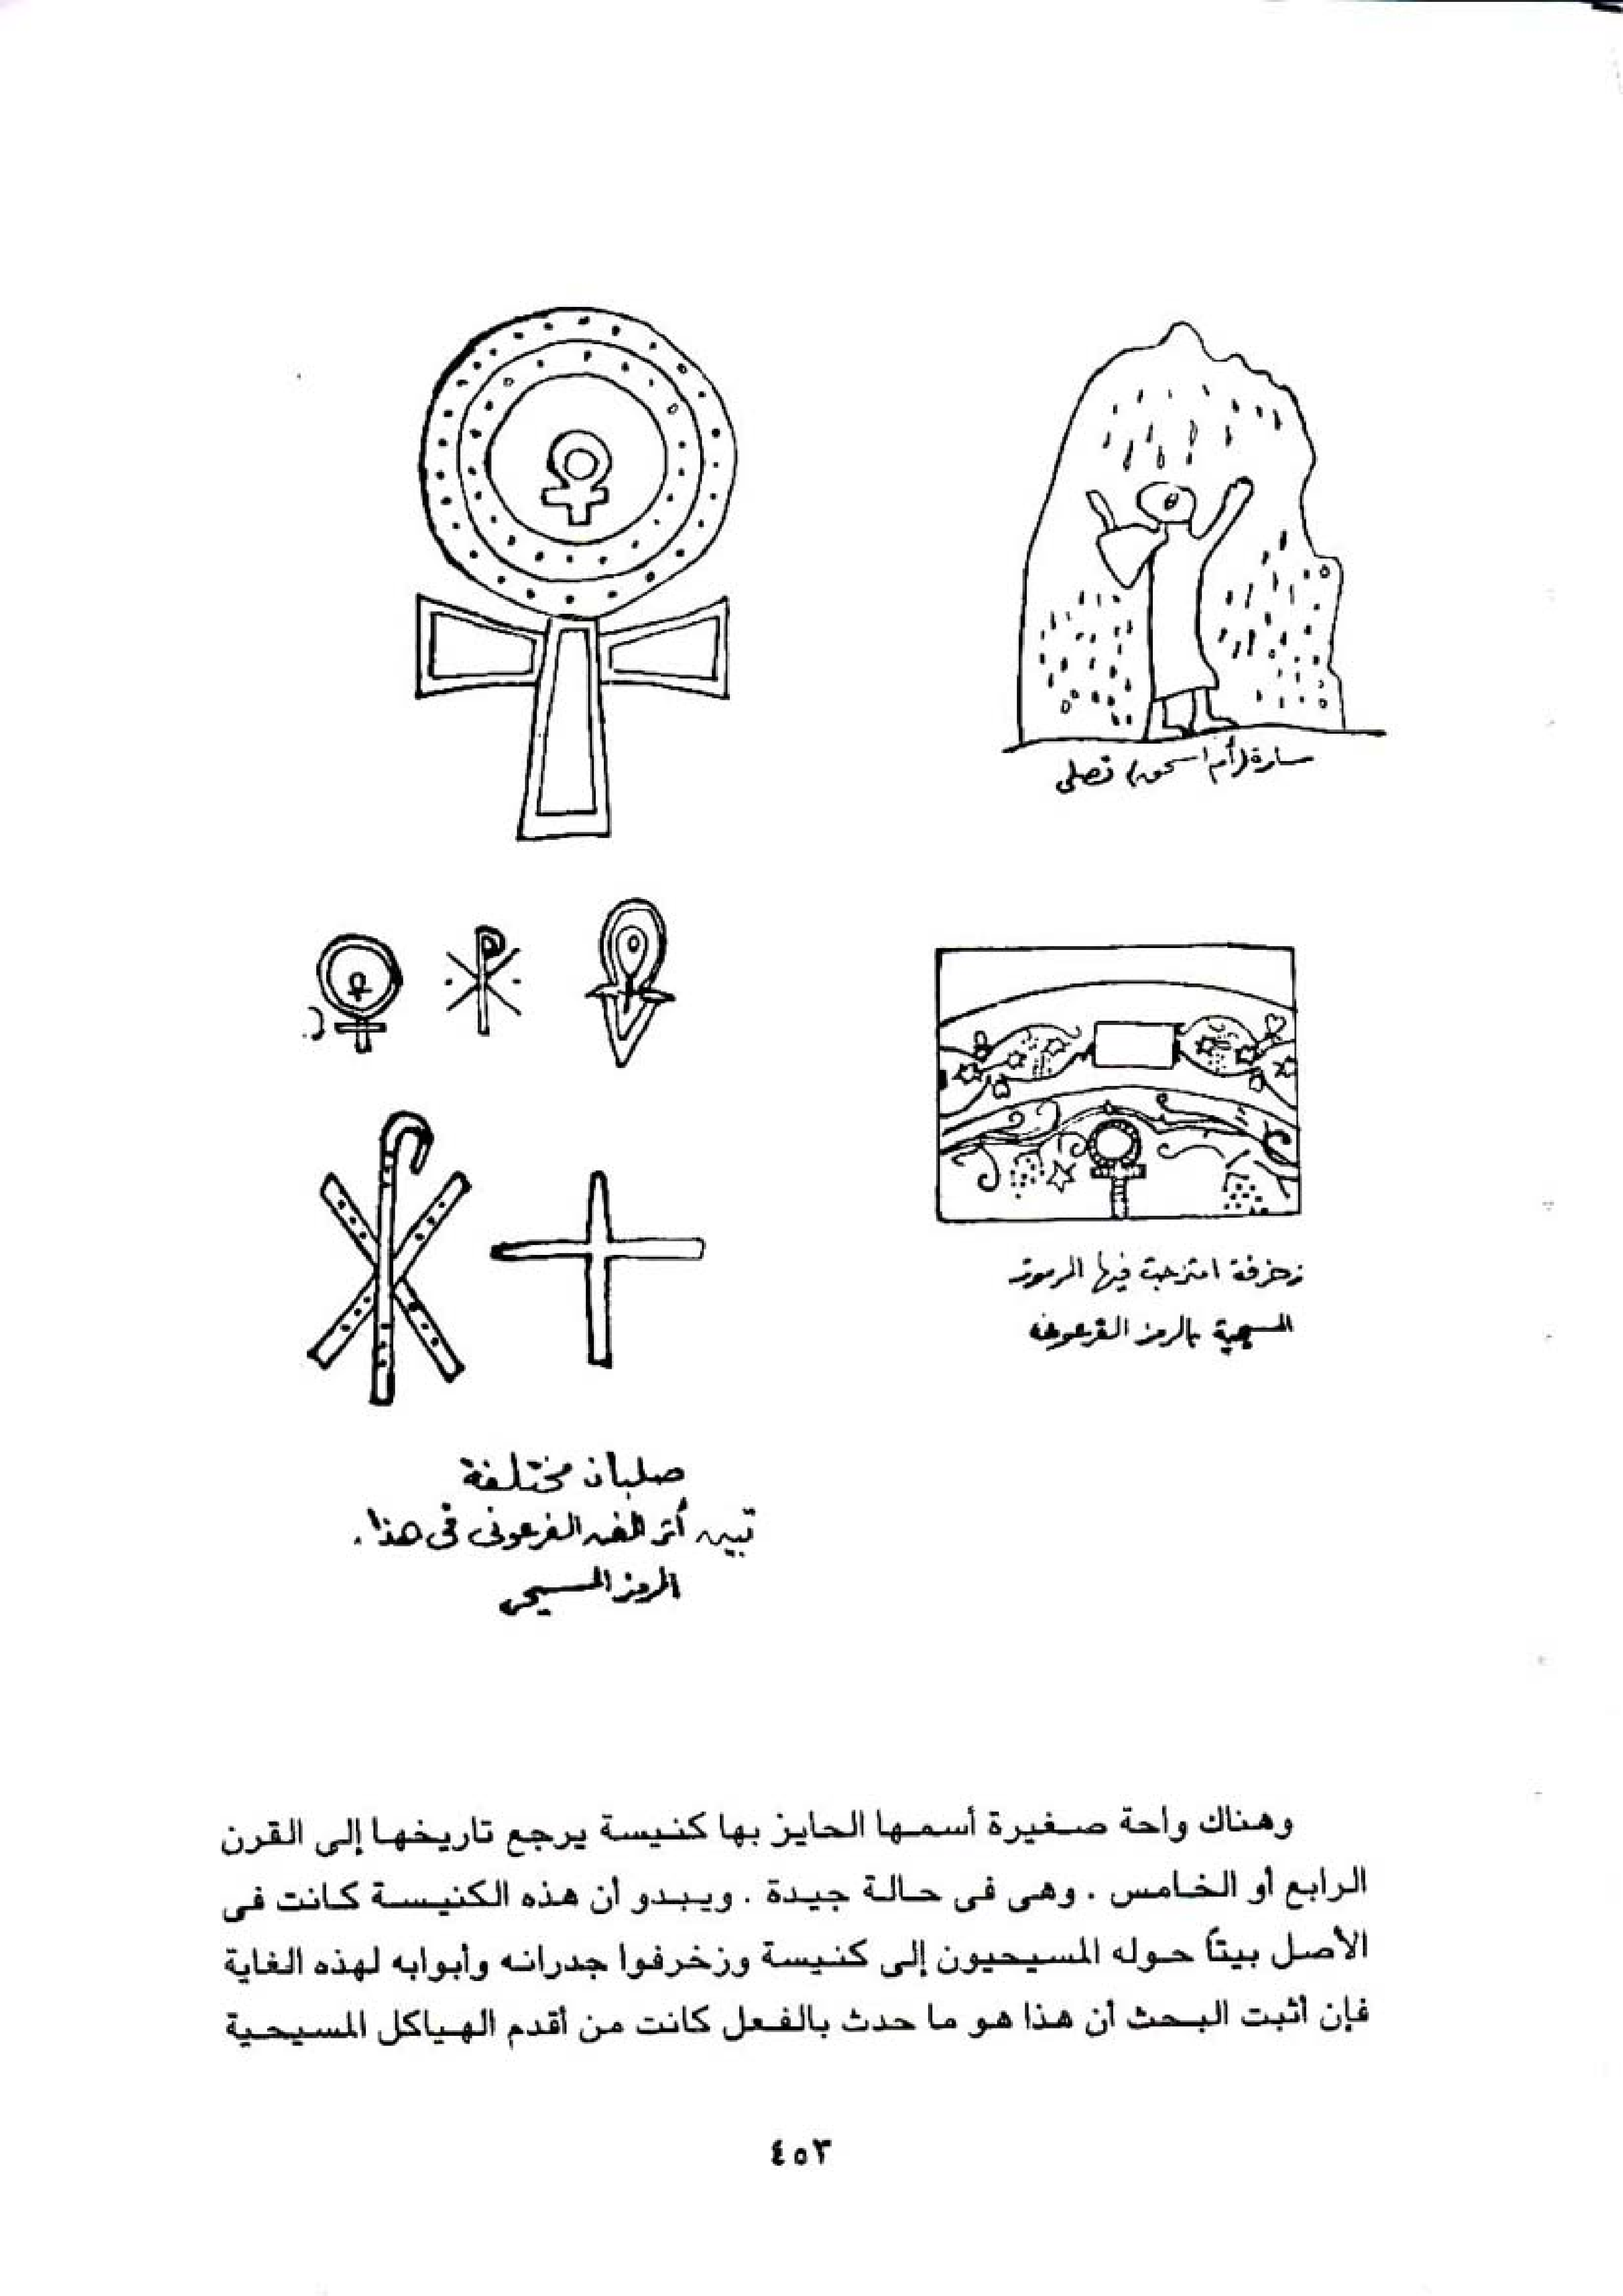 سارة (أم اسحق) تصلى
زخرفة امتزجت فيها الرموز
المسيحية بالرمز الفرعونى
صلبان مختلفة
تبين أثر الفن الفرعونى فى هذا
الرمز المسيحى
وهناك واحة صغيرة أسمها الحايز بها كنيسة يرجع تاريخها إلى القرن
الرابع أو الخامس . وهى فى حالة جيدة . ويبدو أن هذه الكنيسة كانت فى
الأصل بيتاً حوله المسيحيون إلى كنيسة وزخرفوا جدرانه وأبوابه لهذه الغاية
فإن أثبت البحث أن هذا هو ما حدث بالفعل كانت من أقدم الهياكل المسيحية
٤٥٣